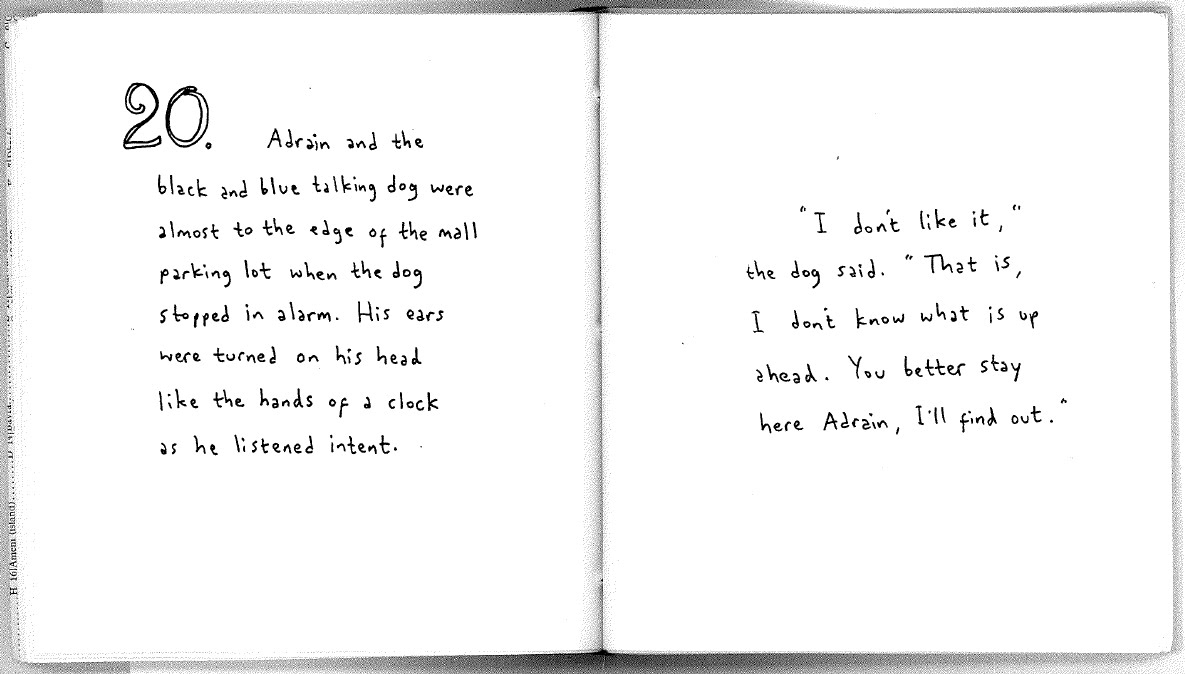 20. Adrain and the
black and blue talking dog were
almost to the edge of the mall
parking lot when the dog
stopped in alarm. His ears
were turned on his head
like the hands of a clock
as he listened intent.
"I don't like it,"
the dog said. "That is,
I don't know what is up
ahead. You better stay
here Adrain, I'll find out."
H 16 Ament (island)